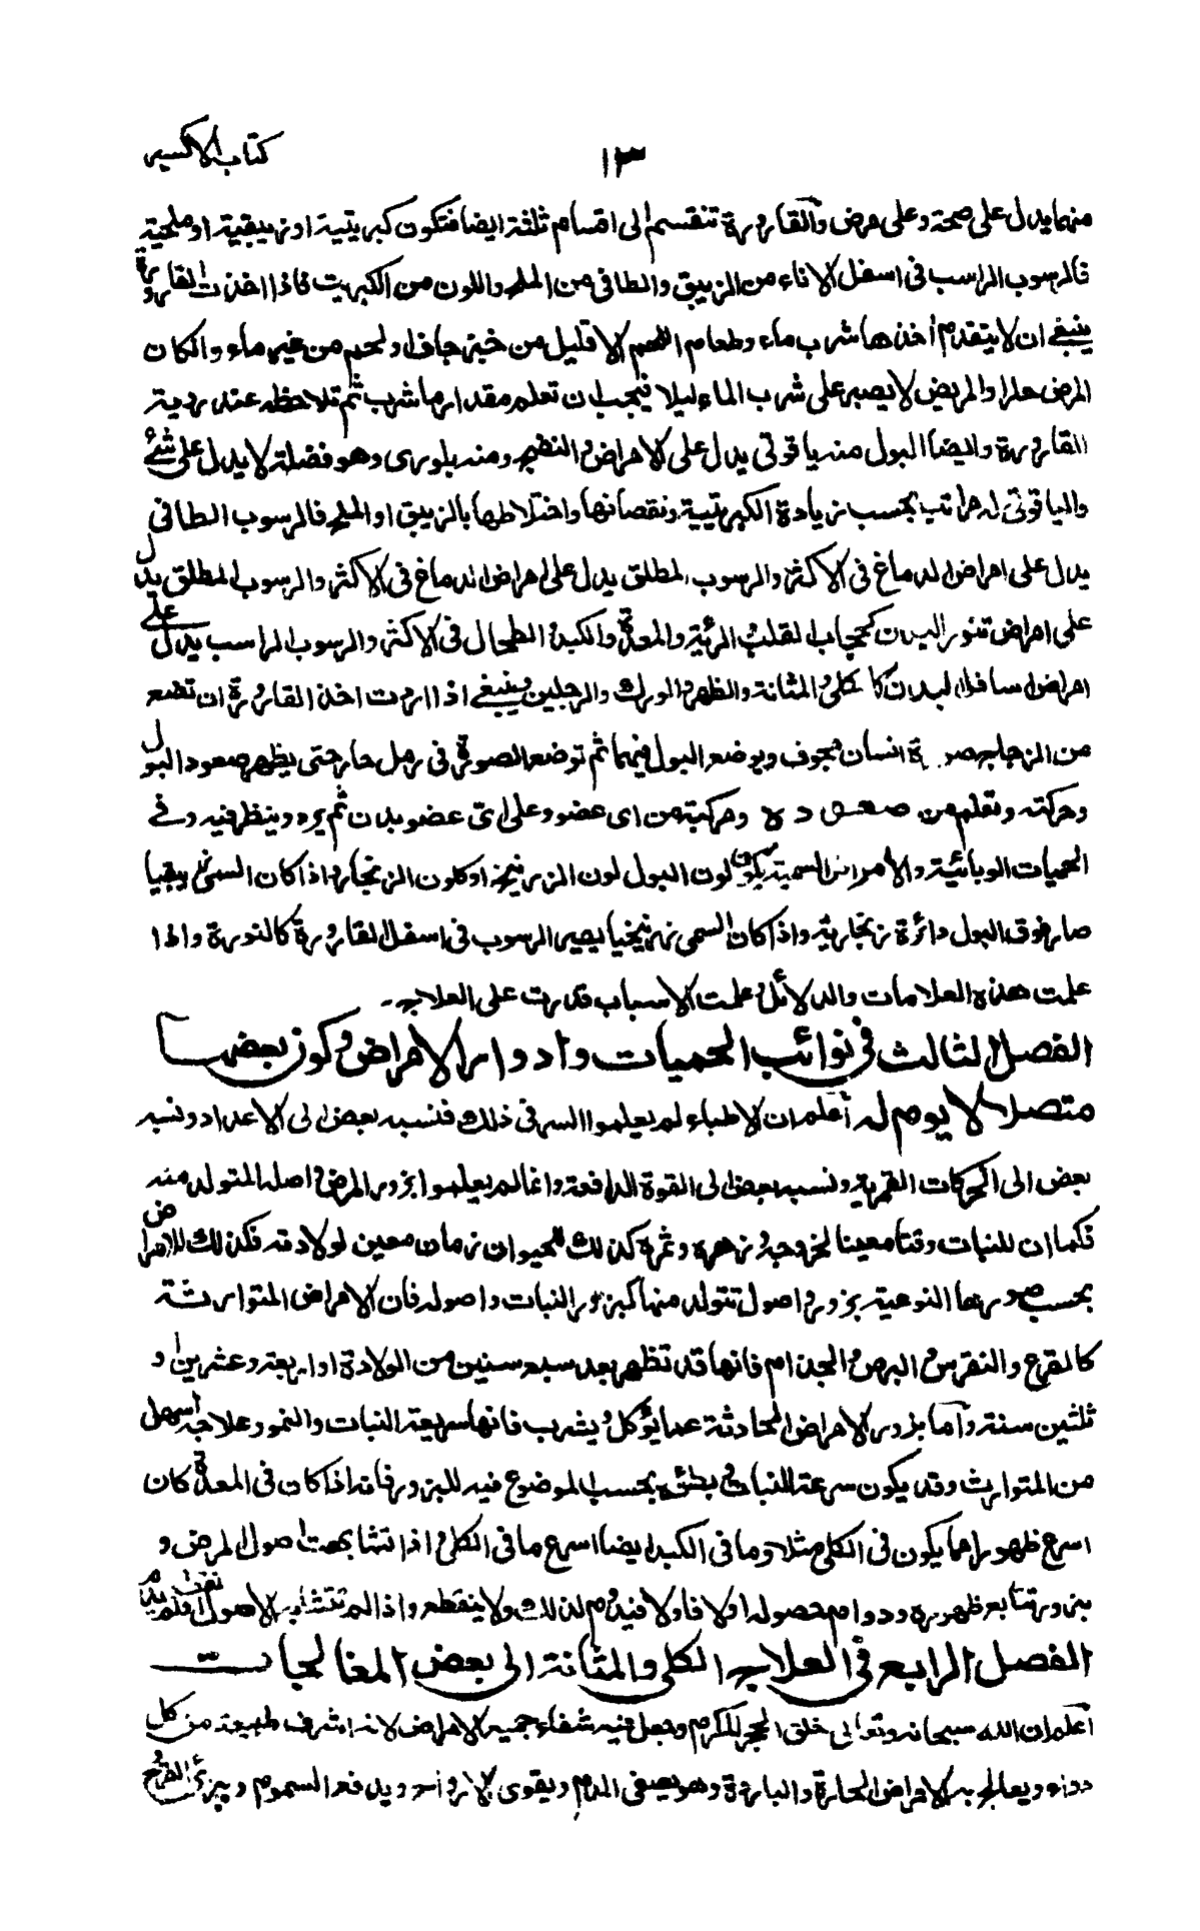 كتاب الاكسير
١٣
منها يدل على صحة وعلى مرض والقارورة تنقسم الى اقسام ثلثة ايضا فتكون كبريتية او زيبقية او ملحية
فالرسوب الراسب فى اسفل الاناء من الزيبق والطافى من الملح واللون من الكبريت فاذا اخذت القارورة
ينبغى ان لا يتقدم أخذها شرب ماء وطعام اللهم الا قليل من خبز جاف او لحم من غير ماء وان كان
المرض حارا والمريض لا يصبر على شرب الماء ليلا فيجب ان تعلم مقدار ما شرب ثم تلاحظه عند روية
القارورة وايضا البول منه ياقوتى يدل على الامراض والنضج ومنه بلورى وهو فضلة لا يدل على شئ
والياقوتى له مراتب بحسب زيادة الكبريتية ونقصانها واختلاطها بالزيبق او الملح فالرسوب الطافى
يدل على امراض الدماغ فى الاكثر والرسوب المطلق يدل على امراض الدماغ فى الاكثر والرسوب المطلق يدل
على امراض تنور البدن كحجاب القلب والرئة والمعدة والكبد والطحال فى الاكثر والرسوب الراسب يدل على
امراض اسافل البدن كالكلى والمثانة والظهر والورك والرجلين وينبغى اذا اردت اخذ القارورة ان تضع
من الزجاج صورة انسان مجوف ويوضع البول فيها ثم توضع الصورة فى رمل حار حتى يظهر صعود البول
وحركته وتعلم من صعوده وحركته من اى عضو وعلى اى عضو بدن ثم يرد وينظر فيه وفى
الحميات الوبائية والأمراض السمية يكون لون البول لون الزرنيخ او كلون الزنجار اذا كان السمى زيبقيا
صار فوق البول دائرة زنجارية واذا كان السمى زرنيخيا يصير الرسوب فى اسفل القارورة كالنورة واذا
علمت هذه العلامات والدلائل وعلمت الاسباب قدرت على العلاج
الفصل الثالث فى نوائب الحميات وادوار الامراض وكون بعضها
متصلا لا يوم له أعلم ان الاطباء لم يعلموا السر فى ذلك فنسبه بعض الى الاعداد ونسبه
بعض الى الحركات القمرية ونسبه بعض الى القوة الدافعة وانما لم يعلموا بزور المرض واصله المتولد منه
فكما ان للنبات وقتا معينا لخروجه وزهره وثمره كذلك للحيوان زمان معين لولادته فكذلك للامراض
بحسب صورها النوعية بزور واصول تتولد منها كبزور النبات واصوله فان الامراض المتوارثة
كالقرع والنقرس والبرص والجذام فانها قد تظهر بعد سبع سنين من الولادة او اربعة وعشرين او
ثلثين سنة وأما بزور الامراض الحادثة عما يؤكل ويشرب فانها سريعة النبات والنمو وعلاجه اسهل
من المتوارث وقد يكون سرعة النبات وبطئه بحسب الموضوع فيه للبزور فانه اذا كان فى المعدة كان
اسرع ظهورا مما يكون فى الكلى مثلا وما فى الكبد ايضا اسرع مما فى الكلى واذا تشابهت اصول المرض و
بزوره تتابع ظهوره ودوام حصوله اولا فاولا فيدوم لذلك ولا ينقطع واذا لم تتشابه الاصول انقلعت فلم يدم
الفصل الرابع فى العلاج الكلى والمثانة الى بعض المعالجات
أعلم ان الله سبحانه وتعالى خلق الحجر المكرم وجعل فيه شفاء جميع الامراض لانه اشرف طبيعة من كل
دواء ويعالج به الامراض الحارة والباردة وهو يصفى الدم ويقوى الارواح ويدفع السموم ويبرئ القروح